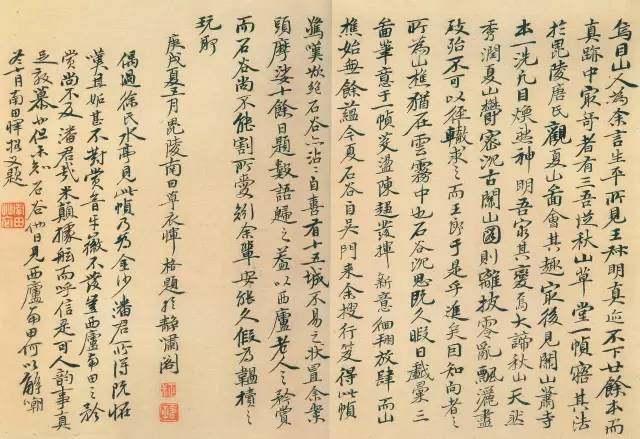 烏目山人為余言生平所見王叔明真迹不下廿餘本而
真跡中最奇者有三吾從秋山草堂一幀寤其法
於毘陵唐氏觀夏山啚會其趣最後見關山蕭寺
本一洗凡目煥然神明吾窮其變焉大諦秋山天然
秀潤夏山鬱密沉古關山圖則離披零亂飄灑盡
致殆不可以徑轍求之而王郎于是乎進矣因知向者之
所為山樵猶在雲霧中也石谷沉思既久暇日戲彙三
啚筆意于一幀滌盪陳趨發揮新意徊翔放肆而山
樵始無餘蘊今夏石谷自吳門来余搜行笈得此幀
驚嘆欲絕石谷亦沾沾自喜有十五城不易之狀置余案
頭摩娑十餘日題數語歸之蓋以西廬老人之矜賞
而石谷尚不能割所愛矧余輩安能久假為韞櫝之
玩耶
庚戌夏五月毘陵南田草衣惲格題於静嘯閣
偶過徐氏水亭見此幀乃為金沙潘君所得既怪
嘆且妬甚不對賞音牙徽不發豈西廬南田之矜
賞尚不及潘君哉米顛據舷而呼信是可人韻事真
足效慕也但未知石谷他日見西廬南田何以解嘲
冬十月南田惲格又題